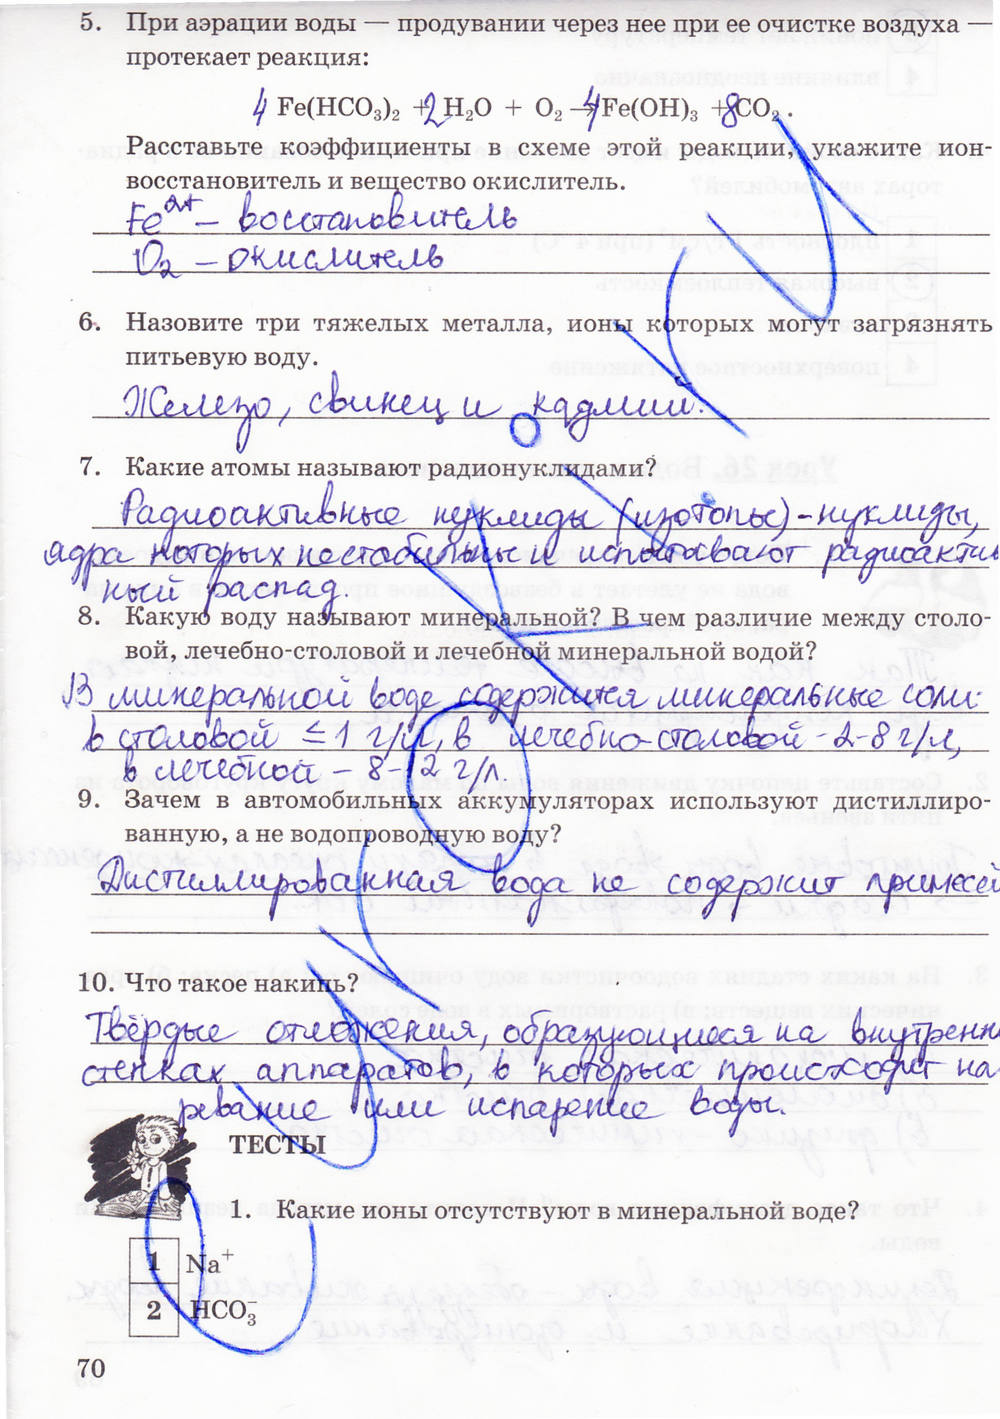 5. При аэрации воды — продувании через нее при ее очистке воздуха —
протекает реакция:
4 Fe(HCO₃)₂ + 2 H₂O + O₂ → 4 Fe(OH)₃ + 8 CO₂.
Расставьте коэффициенты в схеме этой реакции, укажите ион-
восстановитель и вещество окислитель.
Fe²⁺ – восстановитель
O₂ – окислитель
6. Назовите три тяжелых металла, ионы которых могут загрязнять
питьевую воду.
Железо, свинец и кадмий.
7. Какие атомы называют радионуклидами?
Радиоактивные нуклиды (изотопы) – нуклиды,
ядра которых нестабильны и испытывают радиоактив
ный распад.
8. Какую воду называют минеральной? В чем различие между столо-
вой, лечебно-столовой и лечебной минеральной водой?
В минеральной воде содержится минеральные соли:
в столовой ≤ 1 г/л, в лечебно-столовой - 2-8 г/л,
в лечебной – 8-12 г/л.
9. Зачем в автомобильных аккумуляторах используют дистиллиро-
ванную, а не водопроводную воду?
Дистиллированная вода не содержит примесей
10. Что такое накипь?
Твёрдые отложения, образующиеся на внутренн
стенках аппаратов, в которых происходит наг
ревание или испарение воды.
ТЕСТЫ
1. Какие ионы отсутствуют в минеральной воде?
1 Na⁺
2 HCO₃⁻
70